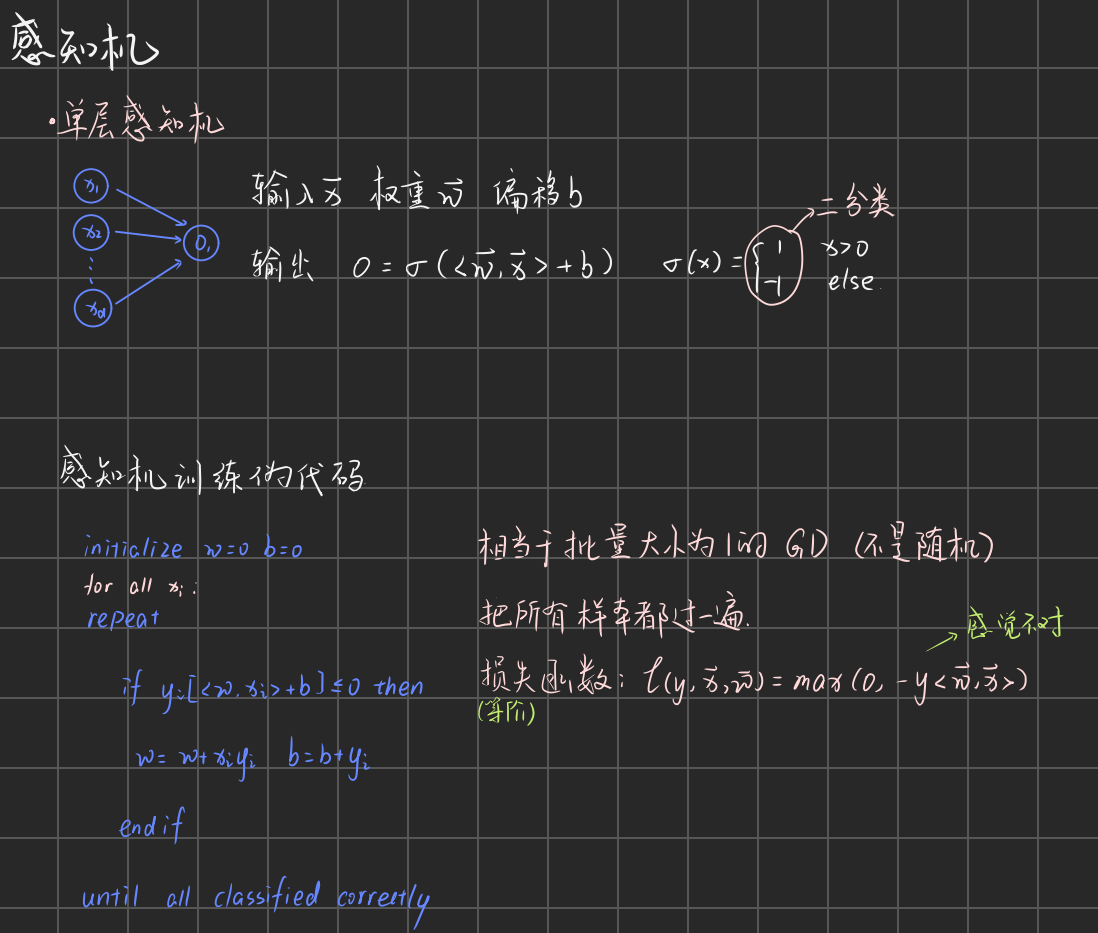 感知机
·单层感知机
x₁
x₂
⋮
x_d
O₁
输入x⃗ 权重w⃗ 偏移b
输出 O = σ(<w⃗, x⃗> + b) σ(x) = { 1 x>0
-1 else.
二分类
感知机训练伪代码
initialize w=0 b=0
for all xᵢ:
repeat
if yᵢ[<w, xᵢ>+b] ≤ 0 then
w = w + xᵢyᵢ b = b + yᵢ
end if
until all classified correctly
相当于批量大小为1的 GD (不是随机)
把所有样本都过一遍.
感觉不对
损失函数: ℓ(y, x⃗, w⃗) = max(0, -y<w⃗, x⃗>)
(等价)